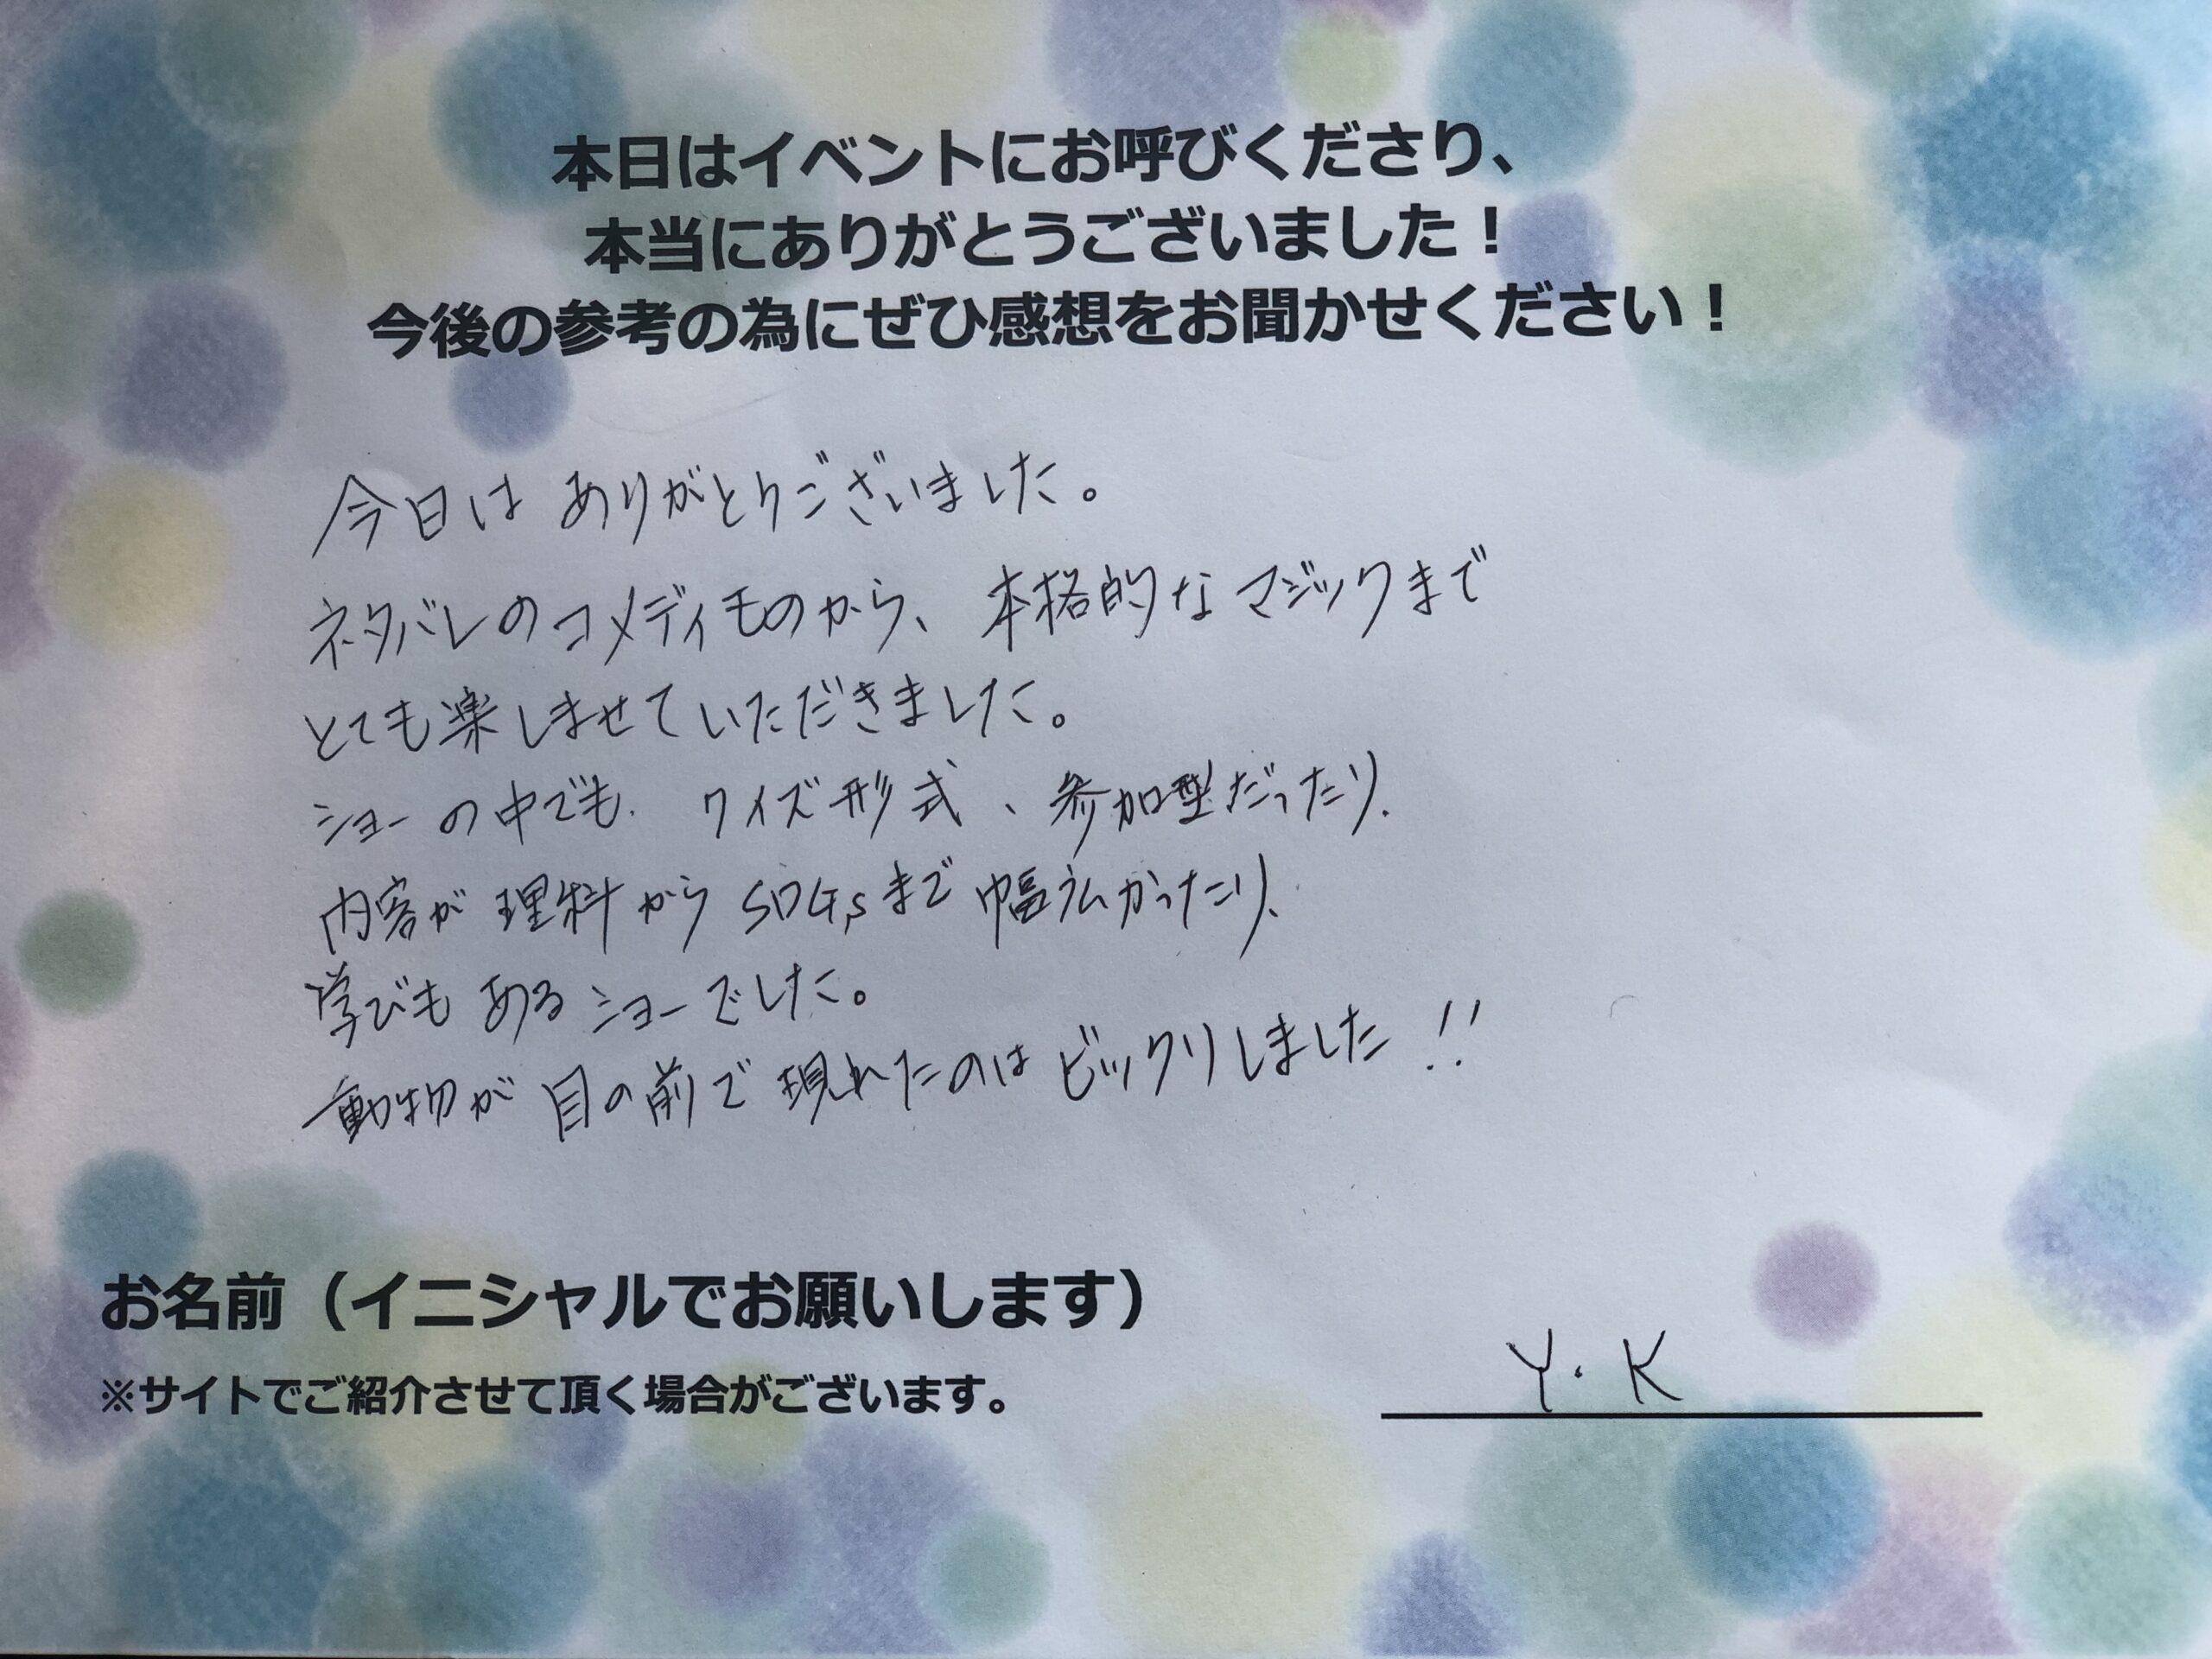 本日はイベントにお呼びくださり、
本当にありがとうございました！
今後の参考の為にぜひ感想をお聞かせください！
今日は ありがとうございました。
ネタバレのコメディものから、本格的なマジックまで
とても楽しませていただきました。
ショーの中でも、クイズ形式、参加型だったり、
内容が理科からSDGsまで幅広かったり、
学びもあるショーでした。
動物が目の前で現れたのはビックリしました!!
お名前（イニシャルでお願いします）
※サイトでご紹介させて頂く場合がございます。
Y・K